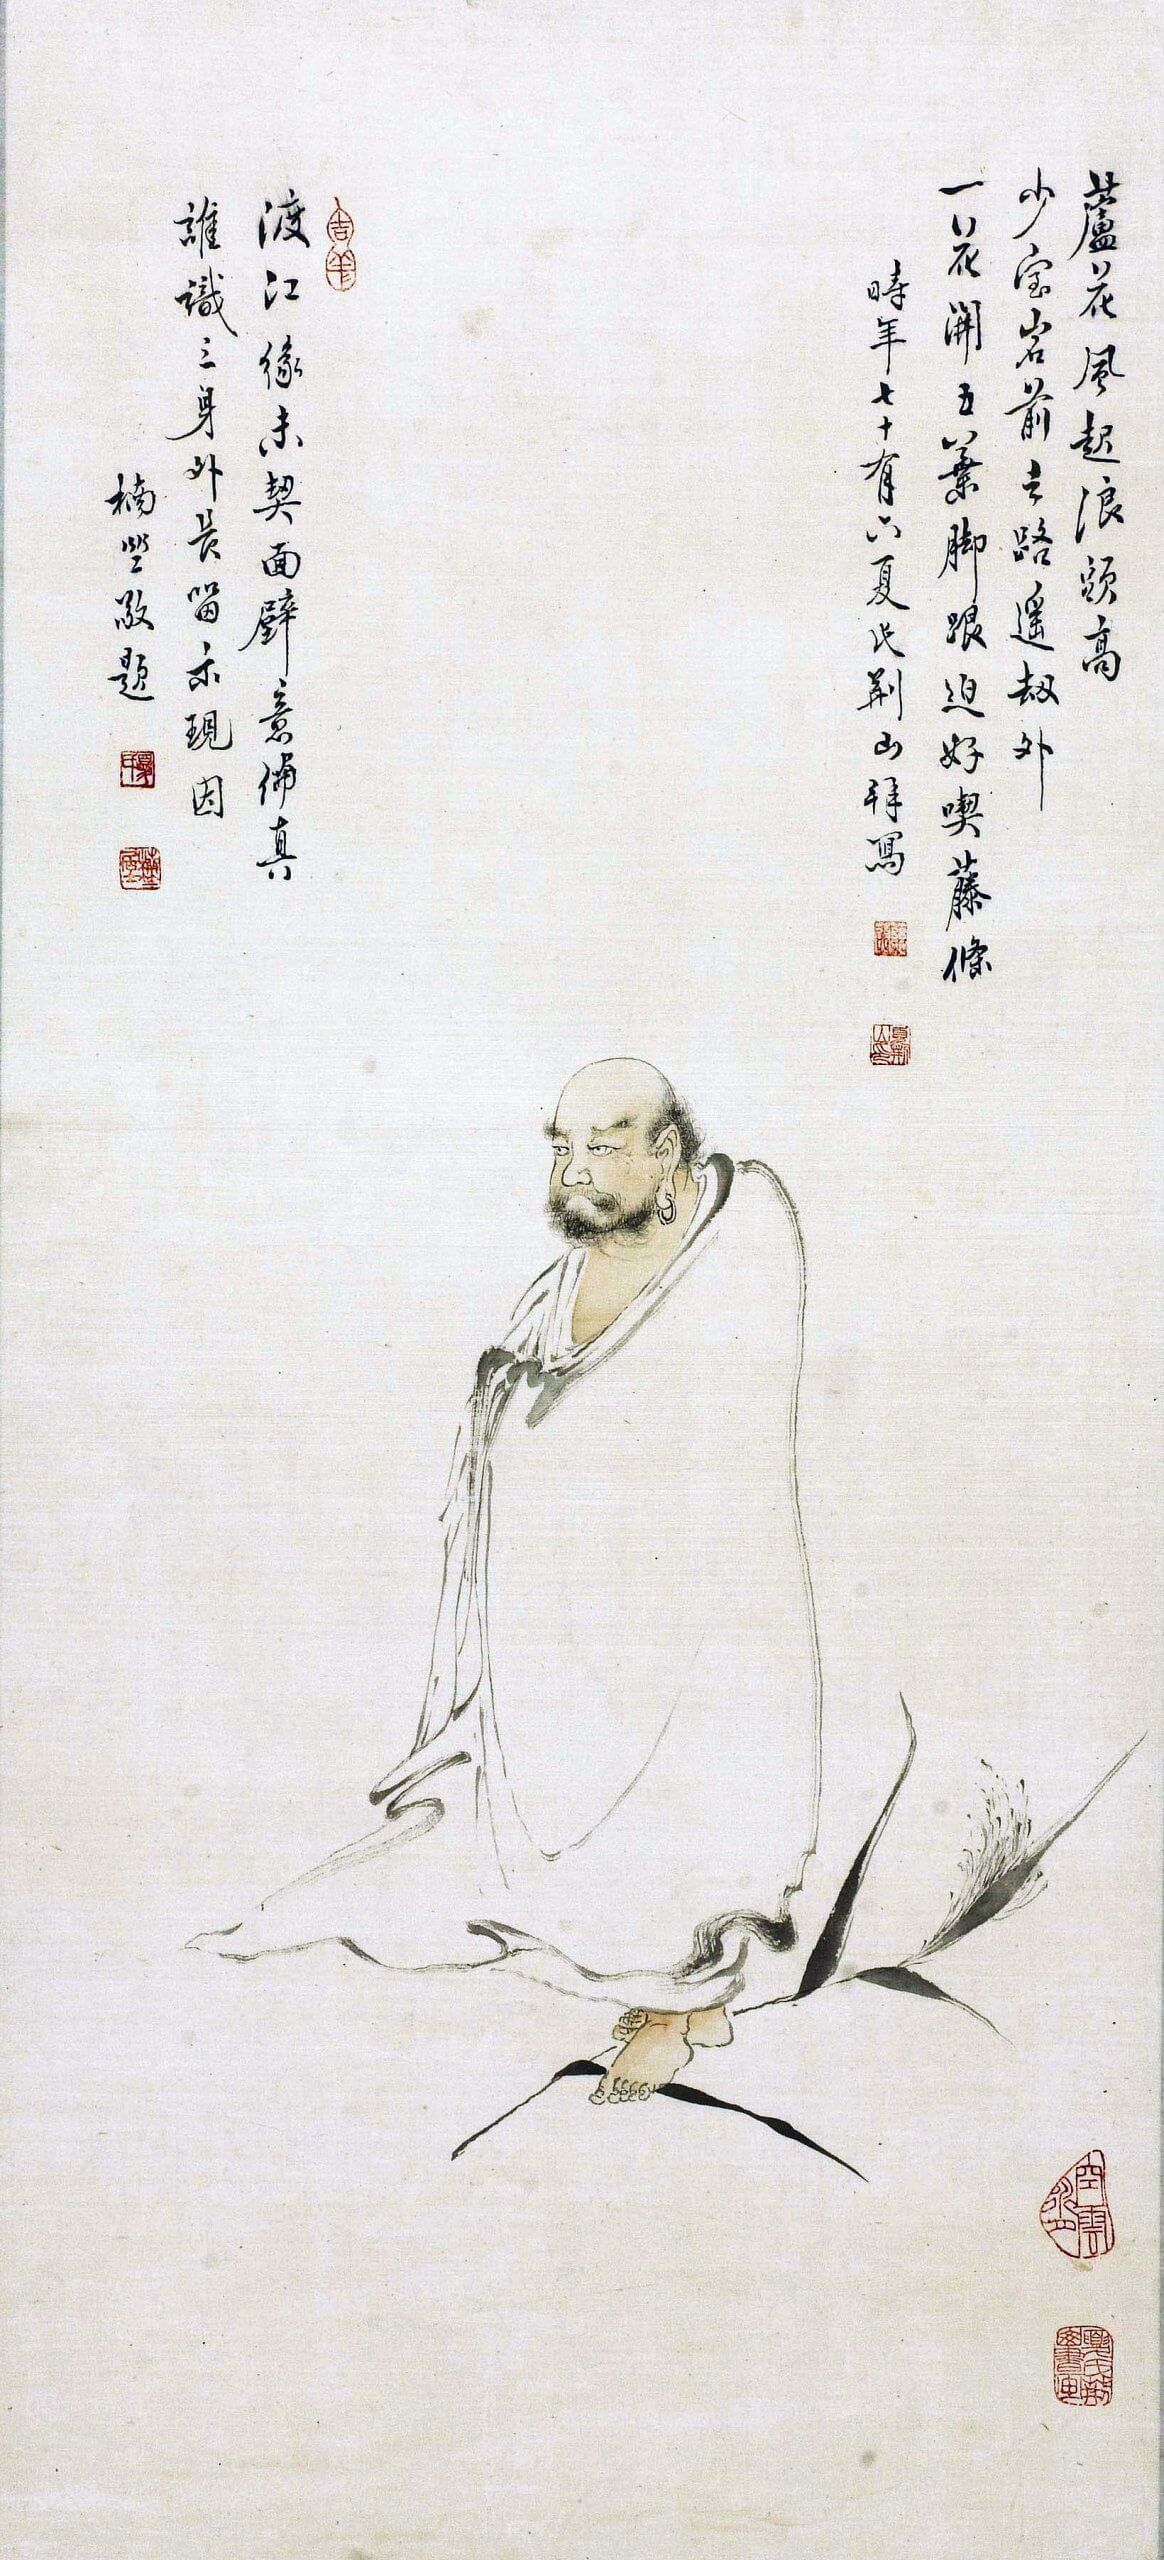 蘆花風起浪頭高
少室岩前去路遥劫外
一花開五葉脚跟迫好喫藤條
時年七十有六夏氏荆山拜寫
渡江緣未契面壁意傳真
誰識三身外長留示現因
楠敬題